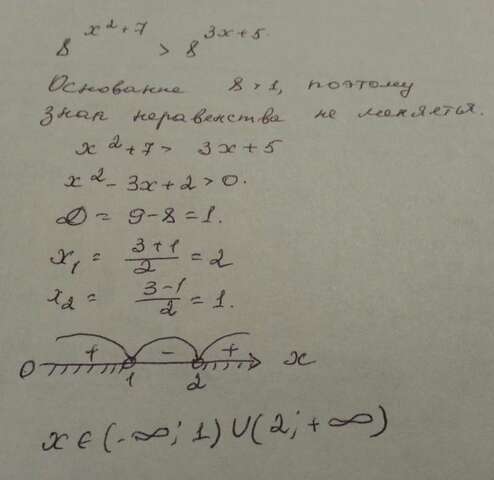 8^(x²+7) > 8^(3x+5).
Основание 8>1, поэтому
знак неравенства не меняется.
x²+7 > 3x+5
x² - 3x + 2 > 0.
D = 9-8 = 1.
x₁ = (3+1)/2 = 2
x₂ = (3-1)/2 = 1.
+ - +
0 1 2 x
x ∈ (-∞; 1) ∪ (2; +∞)